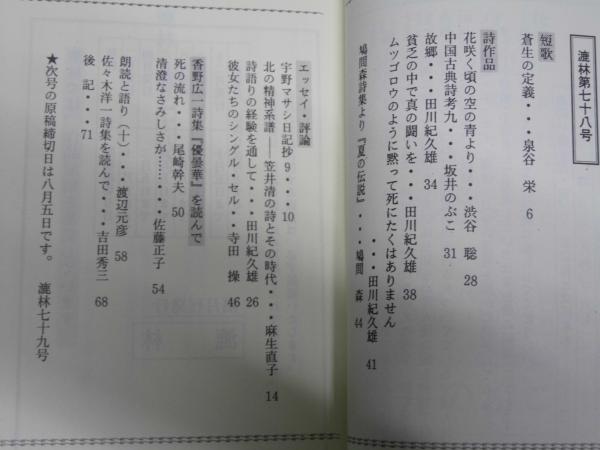 漉林第七十八号
短歌
蒼生の定義・・・泉谷 栄 6
詩作品
花咲く頃の空の青より・・・渋谷 聡 28
中国古典詩考九・・・坂井のぶこ 31
故郷・・・田川紀久雄 34
貧乏の中で真の闘いを・・・田川紀久雄 38
ムツゴロウのように黙って死にたくはありません
・・・田川紀久雄 41
鳩間森詩集より『夏の伝説』・・・鳩間 森 44
エッセイ・評論
宇野マサシ日記抄 9・・・10
北の精神系譜――笠井清の詩とその時代・・・麻生直子 14
詩語りの経験を通して・・・田川紀久雄 26
彼女たちのシングル・セル・・寺田 操 46
香野広一詩集『優曇華』を読んで
死の流れ・・・尾崎幹夫 50
清澄なさみしさが……・・・佐藤正子 54
朗読と語り（十）・・・渡辺元彦 58
佐々木洋一詩集を読んで・・・吉田秀三 68
後 記・・・71
★次号の原稿締切日は八月五日です。 漉林七十九号